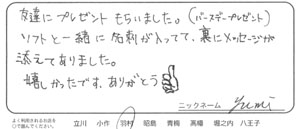 友達にプレゼントもらいました。(バースデープレゼント)
ソフトと一緒に名刺が入ってて、裏にメッセージが
添えてありました。
嬉しかったです。ありがとう
ニックネーム yumi
よく利用されるお店を
○で囲んでください。 立川 小作 羽村 昭島 青梅 高幡 堀之内 八王子